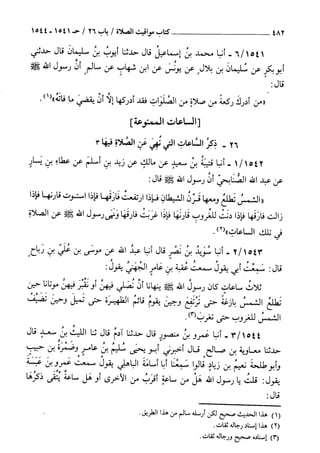 ٤٨٢ كتاب مواقيت الصلاة / باب ٢٦ / حـ ١٥٤١ - ١٥٤٤
٦/١٥٤١ - أنبا محمد بنُ إسماعيل قال حدثنا أيوب بنُ سليمان قال حدثني
أبو بكر عن سُليمان بن بلال عن يونُس عن ابن شهاب عن سالم أنَّ رسول الله ﷺ
قال:
«من أدرك ركعة من صلاة من الصَّلوات فقد أدركها إلّا أن يقضيَ ما فاتَهُ»(١).
[الساعات الممنوعة]
٢٦ - ذكرُ السَّاعات التي نُهي عن الصَّلاة فيها ٣
١/١٥٤٢ - أنبا قتيبةُ بنُ سعيد عن مالك عن زيد بن أسلم عن عطاء بن يسار
عن عبد الله الصُّنابحيِّ أنَّ رسول الله ﷺ قال:
«الشمسُ تطلُع ومعها قرنُ الشيطان فإذا ارتفعتْ فارَقَها فإذا استوت قارنَها فإذا
زالت فارقَها فإذا دنتْ للغروب قارنَها فإذا غربتْ فارقَها ونهى رسول الله ﷺ عن الصلاة
في تلك الساعات»(٢).
٢/١٥٤٣ - أنبا سُويدُ بن نَصْر قال أنبا عبدُ الله عن موسى بن عُلَيّ بن رَباح
قال: سَمِعْتُ أبي يقول سمعتُ عُقبة بن عامر الجُهنيَّ يقول:
ثلاثُ ساعات كان رسولُ الله ﷺ ينهانا أنْ نُصلِّيَ فيهنَّ أو نَقْبُرَ فيهنَّ موتانا حين
تطلعُ الشمسُ بازغةً حتى ترتفعَ وحينَ يقومُ قائمُ الظهيرة حتى تميلَ وحينَ تَضَيَّفُ
الشمسُ للغروب حتى تغرب(٣).
٣/١٥٤٤ - أنبا عمرو بنُ منصور قال حدثنا آدمُ قال ثنا الليثُ بنُ سعد قال
حدثنا معاويةُ بن صالح قال أخبرني أبو يحيى سُليمُ بنُ عامر وضَمْرةُ بنُ حبيب
وأبو طلحة نعيمُ بن زياد قالوا سَمِعْنا أبا أمامةَ الباهلي يقول سمعتُ عمرو بن عَبَسة
يقول: قلت يا رسول الله هلْ من ساعةٍ أقربُ من الأخرى أو هل ساعةٌ يُتَّقى ذكرُها
قال:
(١) هذا الحديث صحيح لكن أرسله سالم من هذا الطريق.
(٢) هذا إسناد رجاله ثقات.
(٣) إسناده صحيح ورجاله ثقات.